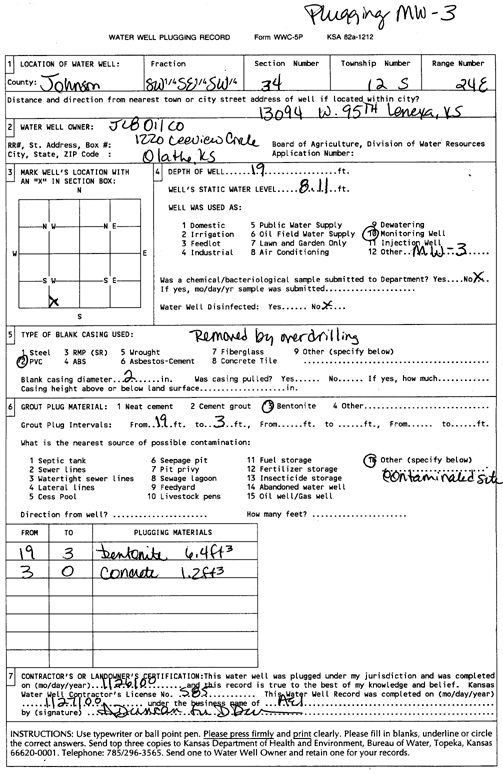 Plugging MW-3
WATER WELL PLUGGING RECORD Form WWC-5P KSA 82a-1212
1 LOCATION OF WATER WELL: Fraction Section Number Township Number Range Number
County: Johnson SW1/4 SE1/4 SW1/4 34 12 S 24E
Distance and direction from nearest town or city street address of well if located within city?
13094 W. 95TH Lenexa, KS
2 WATER WELL OWNER: JCB Oil Co
RR#, St. Address, Box #: 1220 Leeview Circle Board of Agriculture, Division of Water Resources
City, State, ZIP Code : Olathe, KS Application Number:
3 MARK WELL'S LOCATION WITH AN "X" IN SECTION BOX:
N
N W N E
W E
S W S E
X
S
4 DEPTH OF WELL.....19.....ft.
WELL'S STATIC WATER LEVEL.....8.11.....ft.
WELL WAS USED AS:
1 Domestic 5 Public Water Supply 9 Dewatering
2 Irrigation 6 Oil Field Water Supply 10 Monitoring Well
3 Feedlot 7 Lawn and Garden Only 11 Injection Well
4 Industrial 8 Air Conditioning 12 Other..MW-3
Was a chemical/bacteriological sample submitted to Department? Yes....No X.
If yes, mo/day/yr sample was submitted.....................
Water Well Disinfected: Yes..... No X...
5 TYPE OF BLANK CASING USED: Removed by overdrilling
1 Steel 3 RMP (SR) 5 Wrought 7 Fiberglass 9 Other (specify below)
2 PVC 4 ABS 6 Asbestos-Cement 8 Concrete Tile ........................
Blank casing diameter..2.....in. Was casing pulled? Yes...... No...... If yes, how much............
Casing height above or below land surface...............in.
6 GROUT PLUG MATERIAL: 1 Neat cement 2 Cement grout 3 Bentonite 4 Other.........................
Grout Plug Intervals: From..19.ft. to..3..ft., From......ft. to .....ft., From...... to ......ft.
What is the nearest source of possible contamination:
1 Septic tank 6 Seepage pit 11 Fuel storage 16 Other (specify below)
2 Sewer lines 7 Pit privy 12 Fertilizer storage Contaminated site
3 Watertight sewer lines 8 Sewage lagoon 13 Insecticide storage
4 Lateral lines 9 Feedyard 14 Abandoned water well
5 Cess Pool 10 Livestock pens 15 Oil well/Gas well
Direction from well? ................... How many feet? ...................
FROM TO PLUGGING MATERIALS
19 3 bentonite 6.4ft3
3 0 concrete 1.2ft3
7 CONTRACTOR'S OR LANDOWNER'S CERTIFICATION: This water well was plugged under my jurisdiction and was completed
on (mo/day/year)..1/26/00.......and this record is true to the best of my knowledge and belief. Kansas
Water Well Contractor's License No. .585................This Water Well Record was completed on (mo/day/
year)..1/27/00......under the business name of
by (signature)
INSTRUCTIONS: Use typewriter or ball point pen. Please press firmly and print clearly. Please fill in blanks, underline or circle
the correct answers. Send top three copies to Kansas Department of Health and Environment, Bureau of Water, Topeka, Kansas
66620-0001. Telephone: 785/296-3565. Send one to Water Well Owner and retain one for your records.